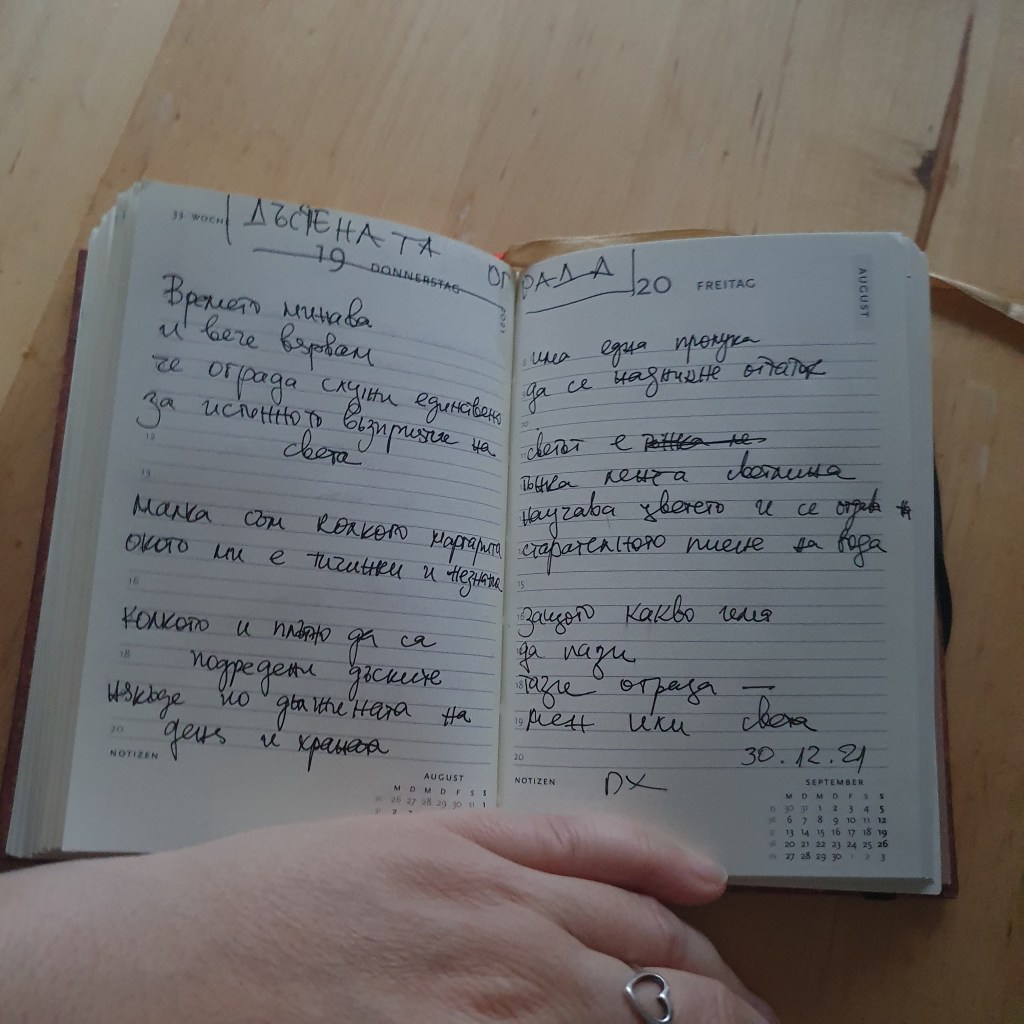 33 WOCH
ДЪСЧЕНАТА
19 DONNERSTAG
2021
Времето минава
и вече вярвам
че ограда служи единствено
за истенното възприятие на
света
13
Малка съм колкото маргарита
окото ми е тичинки и незнание
16
колкото и плътно да са
18
подредени дъските
някъде по дължината на
20
деня и храната
NOTIZEN
AUGUST
M D M D F S S
26 27 28 29 30 31 1
ОГРАДА
20 FREITAG
AUGUST
има една пролука
да се надникне оттатък
светът е тънка ле
тънка лента светлина
научава цветето и се отдава на
старателното пиене на вода
15
защото какво има
да пази
18 тази ограда —
19 мен или света
20
30.12.21
NOTIZEN
ДХ
SEPTEMBER
M D M D F S S
30 31 1 2 3 4 5
6 7 8 9 10 11 12
13 14 15 16 17 18 19
20 21 22 23 24 25 26
27 28 29 30 1 2 3